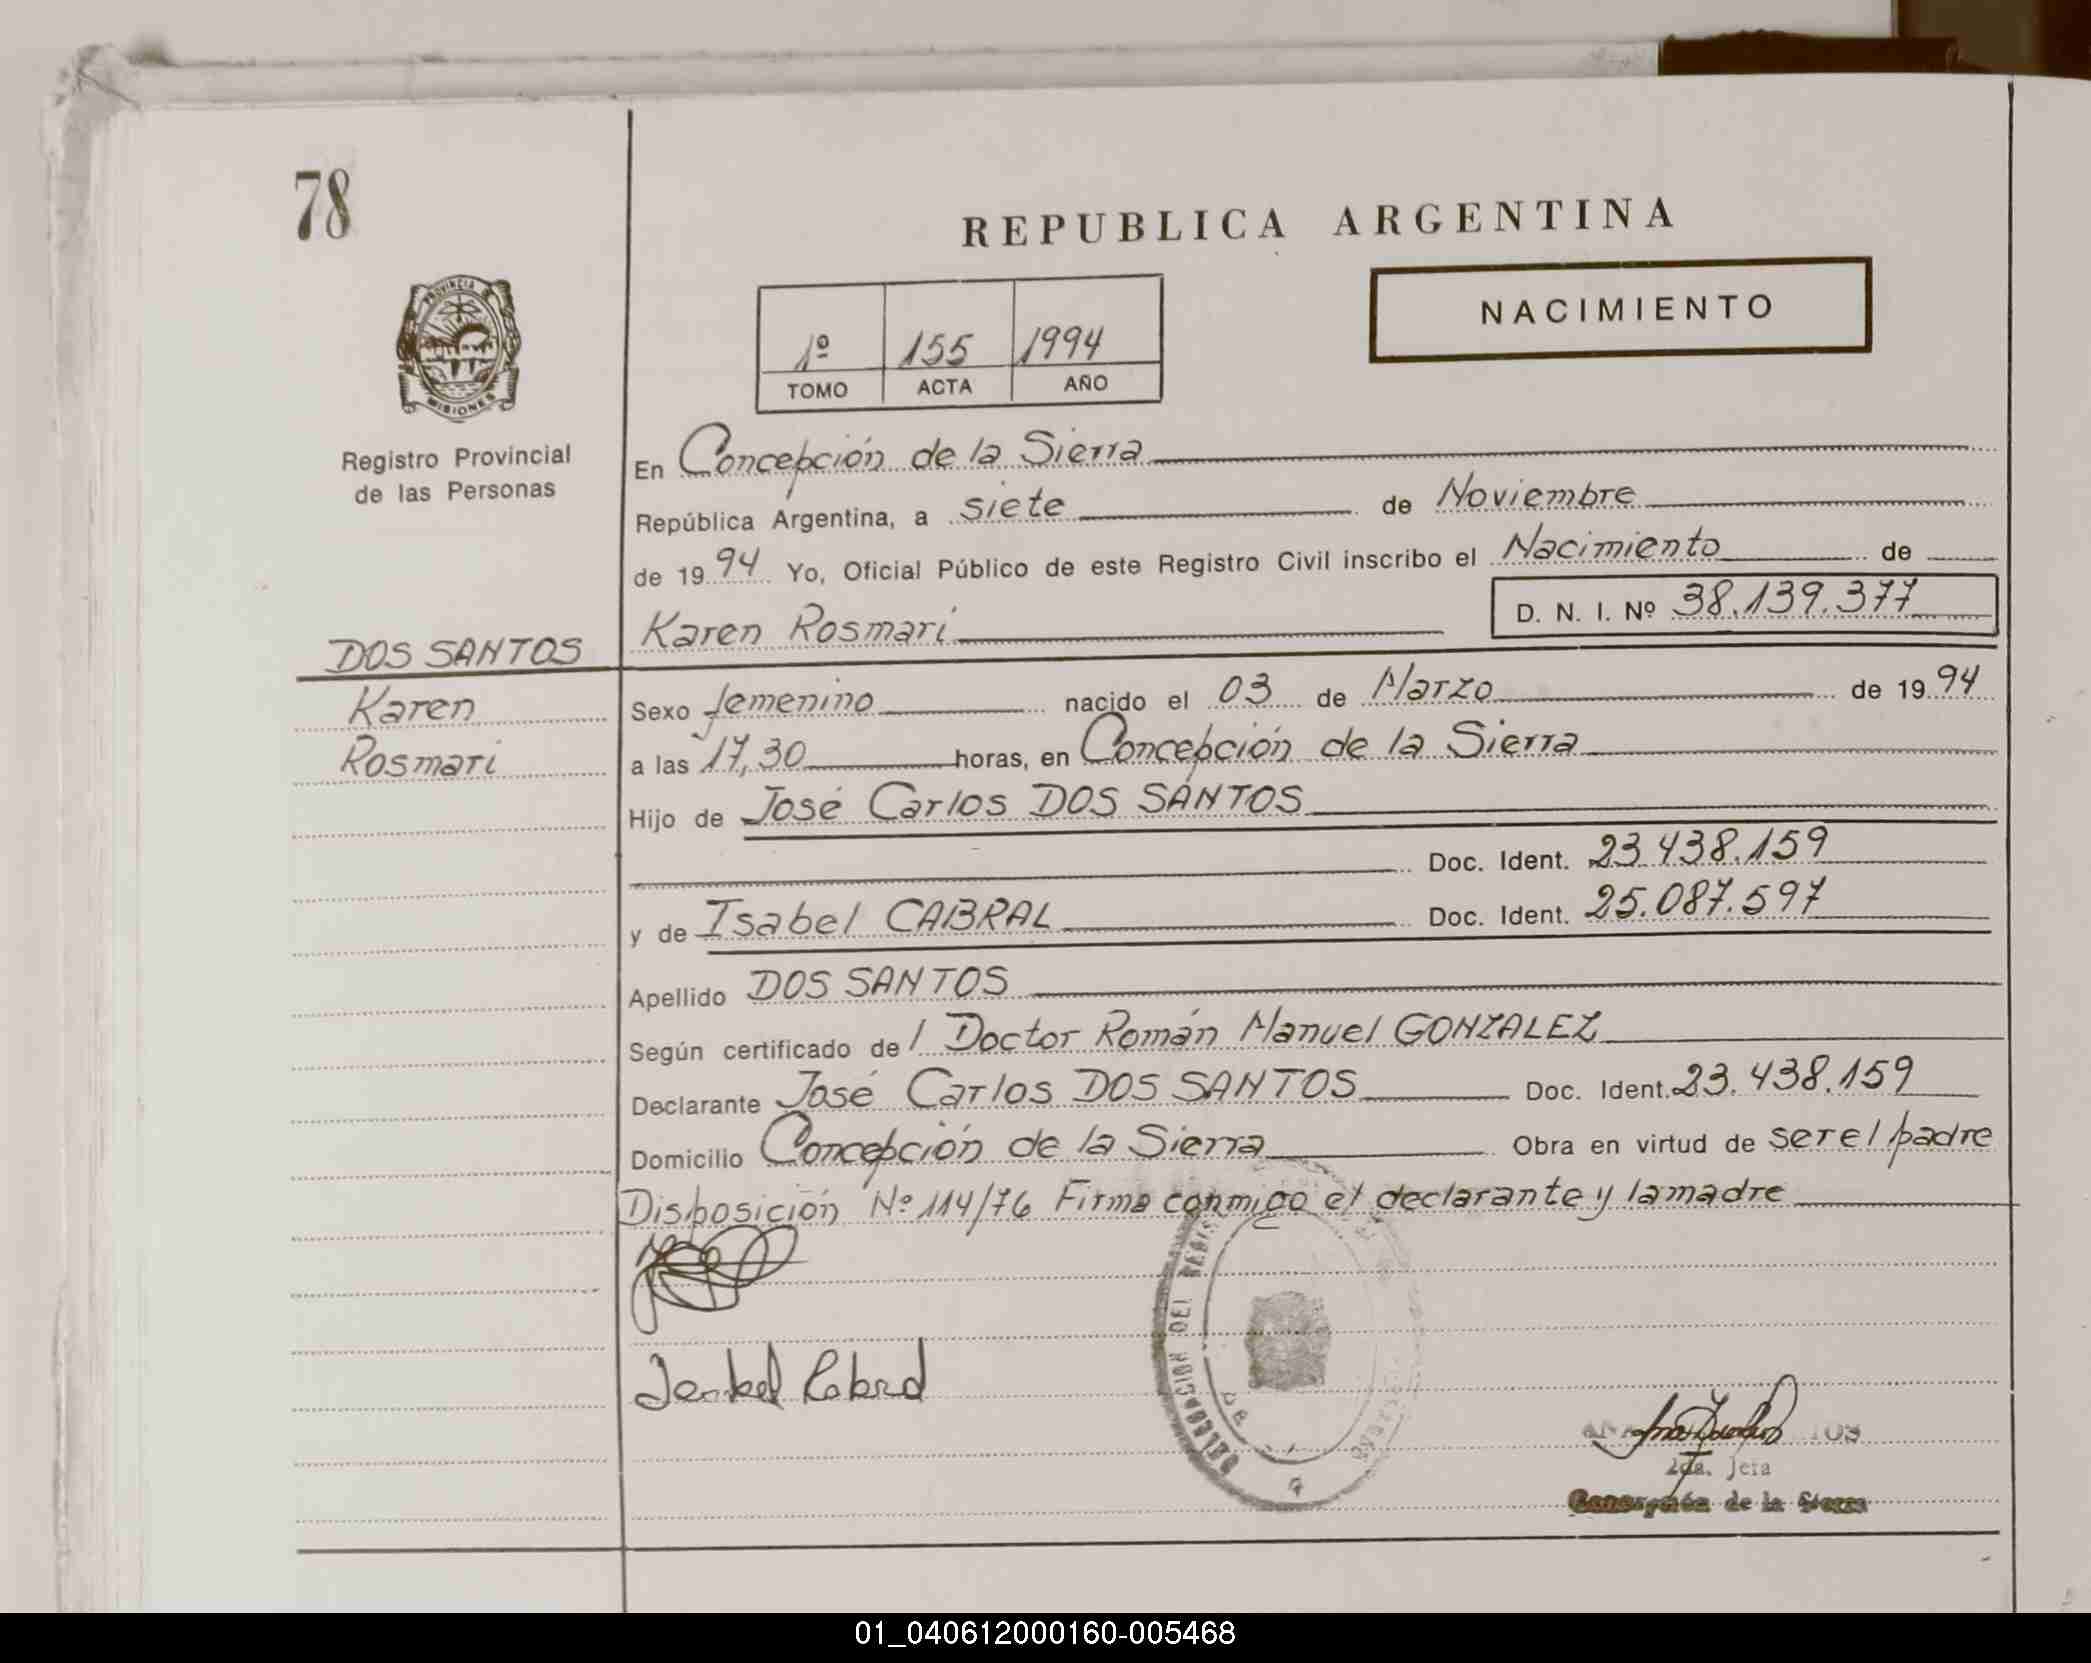 78
REPUBLICA ARGENTINA
PROVINCIA DE
MISIONES
Registro Provincial
de las Personas
NACIMIENTO
1º 155 1994
TOMO ACTA AÑO
En Concepción de la Sierra
República Argentina, a siete de Noviembre
de 1994 Yo, Oficial Público de este Registro Civil inscribo el Nacimiento de
D. N. I. Nº 38.139.377
Karen Rosmari
DOS SANTOS
Karen
Rosmari
Sexo femenino nacido el 03 de Marzo de 1994
a las 17,30 horas, en Concepción de la Sierra
Hijo de José Carlos DOS SANTOS
Doc. Ident. 23.438.159
y de Isabel CABRAL Doc. Ident. 25.087.597
Apellido DOS SANTOS
Según certificado del Doctor Román Manuel GONZALEZ
Declarante José Carlos DOS SANTOS Doc. Ident. 23.438.159
Domicilio Concepción de la Sierra Obra en virtud de ser el padre
Disposición Nº 114/76 Firma conmigo el declarante y la madre
DELEGACION DEL
DE
2da. Jefa
Concepción de la Sierra
01_040612000160-005468